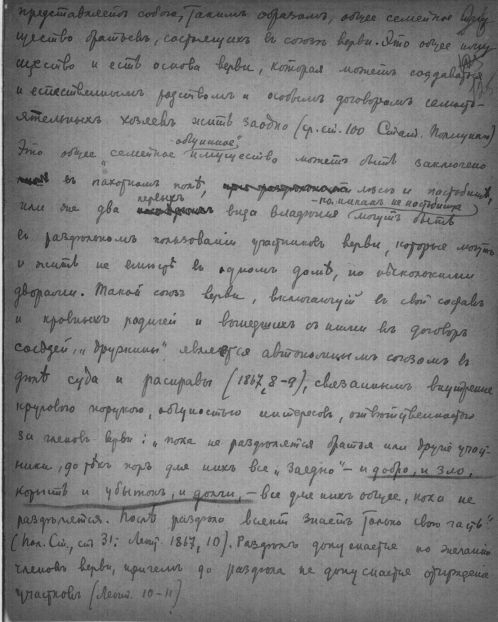 представляетъ собою, такимъ образомъ, общее семейное иму
щество братьевъ, состоящихъ въ союзѣ верви. Это общее иму
щество и есть основа верви, которая можетъ создаваться
и естественнымъ родствомъ и особымъ договоромъ самосто-
ятельныхъ хозяевъ жить заодно (ср. ст. 100 Стат. Полицк.)
общинное"
Это общее „семейное имущество можетъ быть заключено
въ пахотномъ полѣ, лѣсѣ и пастбищѣ,
первыхъ - но никакъ не пастбища
или же два вида владенія могутъ быть
въ раздѣльномъ пользованіи участниковъ верви, которые могутъ
и жить не вмѣстѣ въ одномъ домѣ, но нѣсколькими
дворами. Такой союзъ верви, включающій въ свой составъ
и кровныхъ родичей и вошедшихъ съ ними въ договоръ
сосѣдей, „дружины" является автономнымъ союзомъ въ
дѣлѣ суда и расправы (1867, 8-9), связаннымъ внутренне
круговою порукою, общностью интересовъ, отвѣтственностью
за членовъ верви: „пока не раздѣлятся братья или другіе участ-
ники, до тѣхъ поръ для нихъ все „заедно" - и добро, и зло,
корысть и убытокъ, и долги, - все для нихъ общее, пока не
раздѣлятся. Послѣ раздѣла всякій знаетъ только свою часть"
(Пол. Ст., ст 31; Леонт. 1867, 10). Раздѣлъ допускается по желанію
членовъ верви, причемъ до раздѣла не допускается отчужденіе
участковъ (Леонт. 10-11)